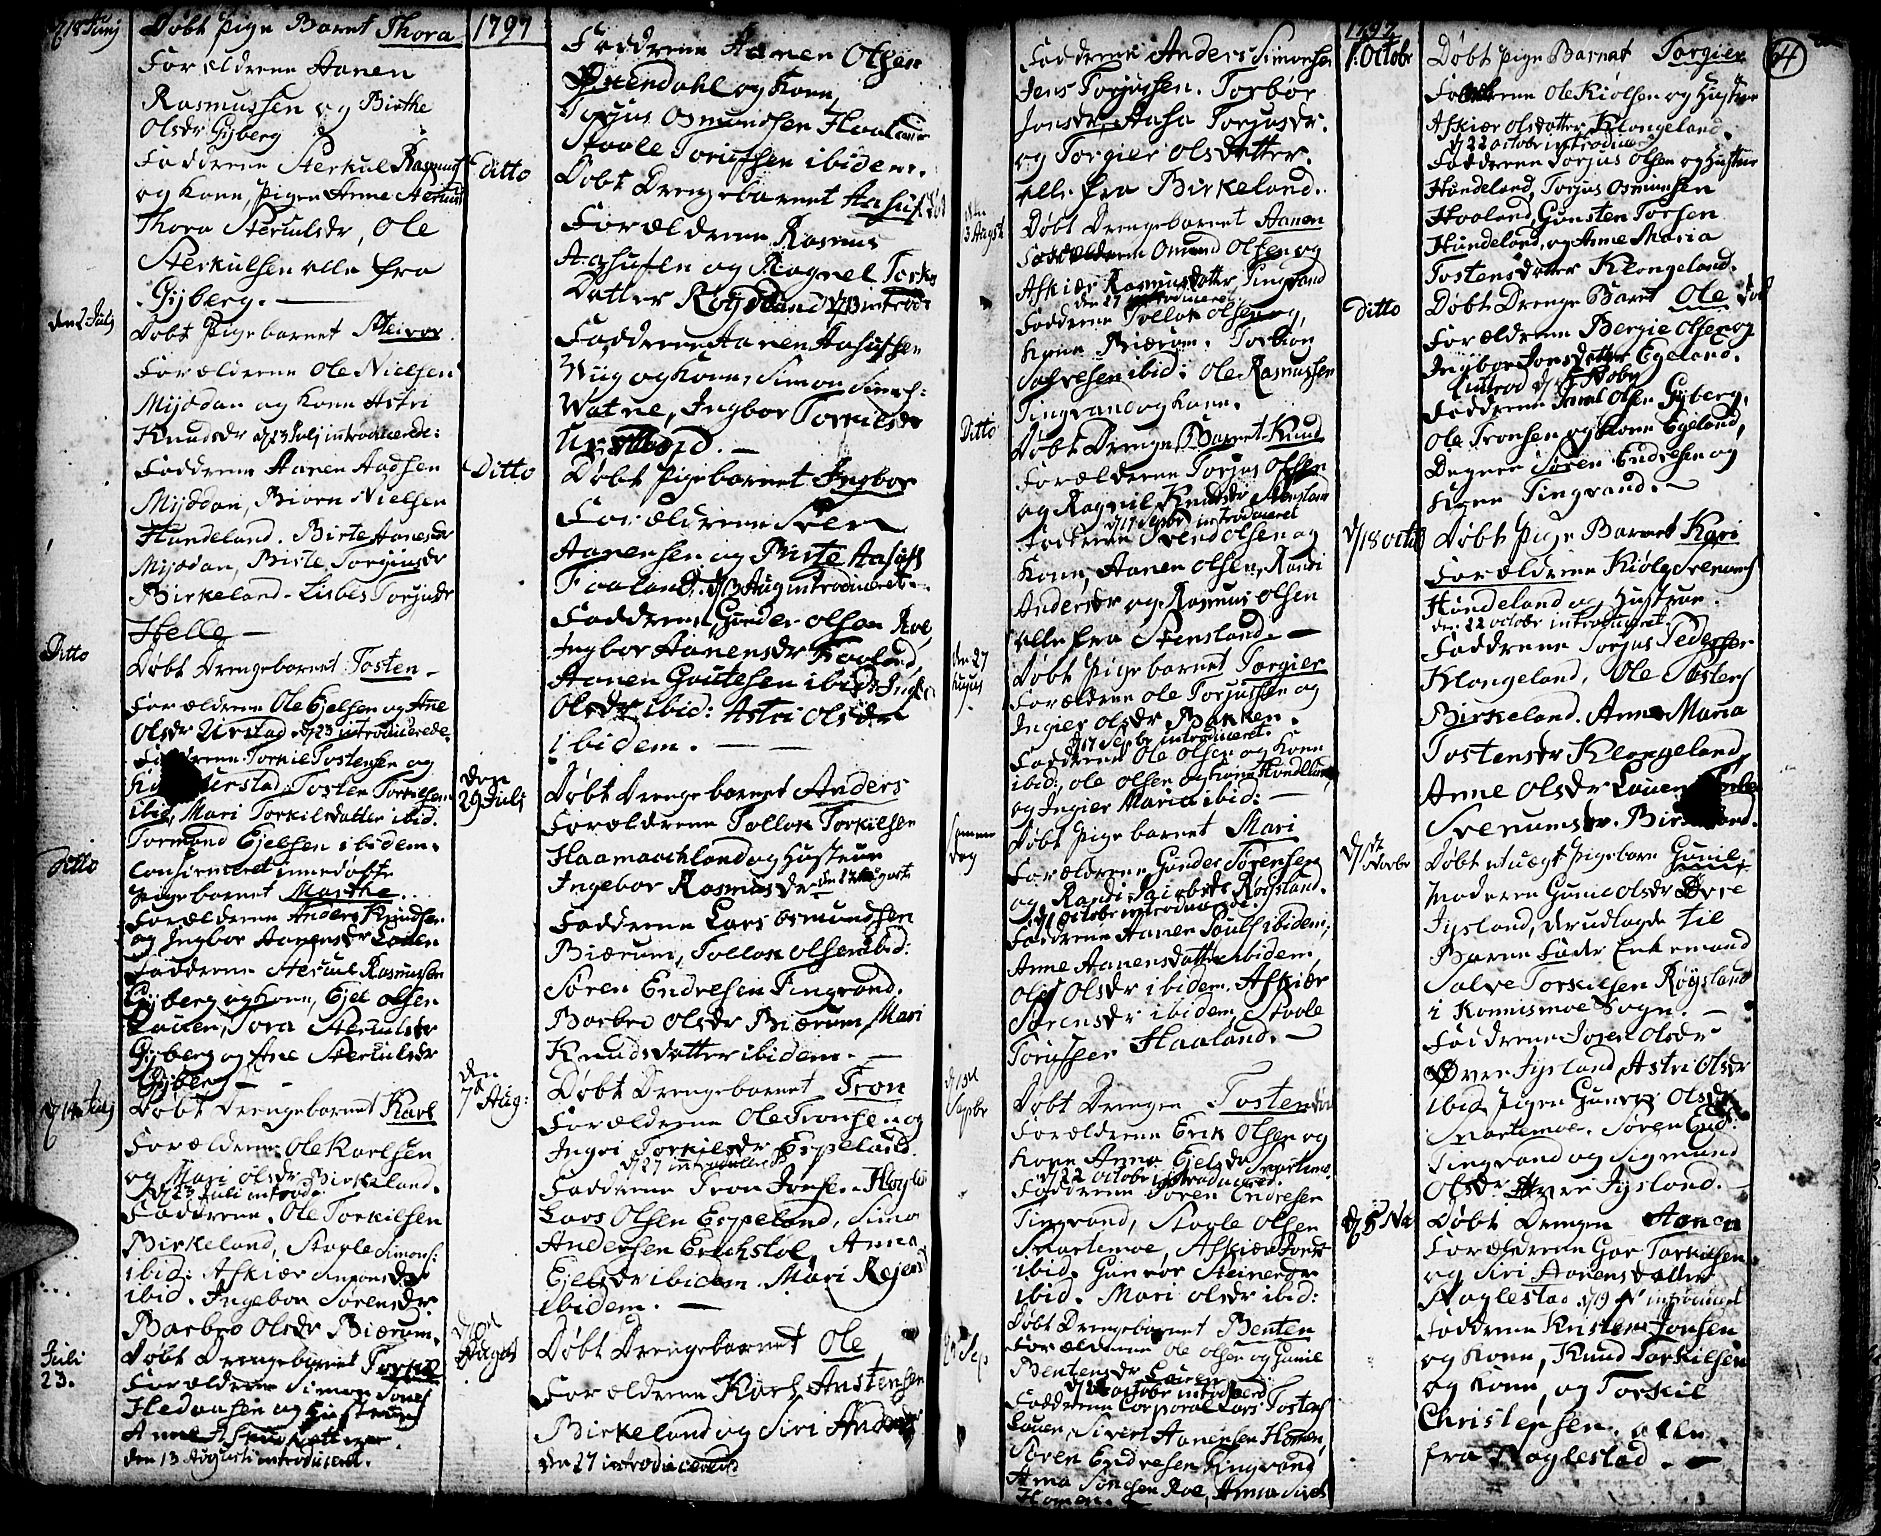 d 18 Junj
Døbt Pige Barnet Thora
Forældrene Aanen
Rasmussen og Birthe
Olsdr Gyberg
Faddrene Sterkul Rasmus
og Kone, Pigen Anne Aanens
Thora Sterkulsdr, Ole
Sterkulsen alle fra
Gyberg.
den 2 Julj
Døbt Pigebarnet Steivor
Forældrene Ole Nielsen
Myddan og Kone Astri
Knudsdr d 23 Julj introducerede:
Faddrene Aanen Aadsen
Myddan, Biørn Nielsen
Hundeland. Birte Aanensdr
Myddan, Birte Torgiusdr
Birkeland. Lisbet Torjusdr
Helle
Ditto
Døbt Drengebarnet Tosten
Forældrene Ole Ejelsen og Ane
Olsdr Urstad d 23 introducerede.
Torkil Tostensen og
Urstad Tosten Torkilsen
ibid, Mari Torkilsdatter ibid.
Tormond Ejelsen ibidem.
Ditto
Confirmeret hiemedøbte
Pigebarnet Marthe.
Forældrene Anders Knudsen
og Ingbor Aanensdr Lauen
Faddrene Sterkul Rasmusen
Gyberg og Kone, Ejel Olsen
Lauen, Tora Sterkulsdr
Gyberg og Ane Sterkulsdr
Gyberg
d 14 Julj
Døbt Drengebarnet Karl
Forældrene Ole Karlsen
og Mari Olsdr Birkeland.
d 23 Juli introd:
Faddrene. Ole Torkilsen
Birkeland, Staale Simons:
ibid: Askiær Simonsdr
ibid. Ingebor Sørensdr
Barbro Olsdr Biærum.
Juli 23.
Døbt Drengebarnet Torkil
Forældrene Simon Jons
Hedaasen og Hustrue
Anne
den 13 Augusti introduceret.
1797
Faddrene Aanen Olsen
Qvendahl og Kone,
Torjus Osmundsen Haaland
Staale Torjussen ibidem.
Ditto
Døbt Drengebarnet Aasuf død
Forældrene Rasmus
Aasufsen og Ragnel Torkels
Datter Røydland d 13 introd:
Faddrene Aanen Aasufsen
Wiig og Kone, Simon Simons:
Watne, Ingbor Torkilsdr
Ditto
Døbt Pigebarnet Ingbor
Forældrene Sven
Aanensen og Birte Aasufs
Faaland. d 13 Aug introduceret.
Faddrene, Gunder Olsen Roe,
Ingbor Aanensdr Faaland,
Aanen Goutesen ibid:
Olsdr ibid: Astri Olsdr
ibidem.
den 29 Juli
Døbt Drengebarnet Anders
Forældrene Tollok Torkilsen
Haamaachland og Hustrue
Ingebor Rasmusdr den 27 Auguste
Faddrene Lars Osmundsen
Biærum, Tollok Olsen ibid:
Søren Endresen Tingvand.
Barbro Olsdr Biærum, Mari
Knudsdatter ibidem.
den 7 Aug:
Døbt Drengebarnet Tron
Forældrene Ole Tronsen og
Ingri Torkilsdr Espeland.
d 27 introduceret
Faddrene Tron Jonsen
Lars Olsen Espeland, Simon
Andersen Erichstøl, Anna
Ejelsdr ibidem. Mari
ibidem.
August
Døbt Drengebarnet Ole
Forældrene Karl Austensen
Birkeland og Siri Anders
den 27 introducerede
Faddrene Anders Simonsen
Jens Torjussen. Torbor
Jonsdr, Aasa Torjusdr.
og Torgier Olsdatter.
alle fra Birkeland.
13 August
Døbt Drengebarnet Aanen
Forældrene Omund Olsen og
Askiær Rasmusdatter Tingvand
den 27 introduceret
Faddrene Tollok Olsen og
Kone Biærum. Torkion
Salvesen ibid: Ole Rasmussen
Tingvand og Kone.
Ditto
Døbt Drenge Barnet Knud
Forældrene Torjus Olsen
og Ragnil Knudsdr Stensland
d 17 Sepbr introduceret
Faddrene Svend Olsen og
Kone, Aanen Olsen, Randi
Andersdr og Rasmus Olsen
alle fra Stensland.
den 27 August
Døbt Pigebarnet Torgier
Forældrene Ole Torjussen og
Ingier Olsdr Bakken.
d 17 Sepbr introduceret.
Faddrene Ole Olsen og Kone
ibid:, Ole Olsen og Kone Hundeland,
og Ingier Maria ibid:
samme dag
Døbt Pigebarnet Mari
Forældrene Gunder Sørensen
og Randi Jacobsdr Røysland.
d 1 October introducerede.
Faddrene Aanen Pouls ibidem,
Anne Aanensdatter ibidem
Olsdr ibidem. Askiær
Sørensdr ibidem, Staale
Torjussen Haaland.
d Sepbr
Døbt Drengen Tosten
Forældrene Erik Olsen og
Kone Anna Ejelsdr Snartemo
d 22 October introduceret.
Faddrene Søren Endresen
Tingvand, Staale Olsen
Snartemoe, Askiær Jonsdr
ibid. Gunvor Steinersdr
ibid. Mari Olsdr ibid:
Sep
Døbt Drengebarnet Benten
Forældrene Ole Olsen og Gunil
Bentensdr Lauen
d 22 October introduced
Faddrene Corporal Lars Tostens
Lauen, Sivert Aanensen Homen,
Søren Endresen Tingvand
Anna Simonsen Roe, Anna Sivers
Homen.
1797
64
1: Octobr
Døbt Pige Barnet Torgier
Forældrene Ole Kiølsen og Hustrue
Askiær Olsdatter Klongeland.
d 22 Octobr introduceret
Faddrene Torjus Olsen og Hustrue
Hundeland, Torjus Osmunsen
Haaland, Gunsten Torsen
Hundeland, og Anne Maria
Tostensdatter Klongeland.
Ditto
Døbt Drenge Barnet Ole død
Forældrene Bergie Olsen og
Ingbor Jonsdatter Egeland.
introd d 5 Nobr
Faddrene Olsen Gyberg,
Ole Tronsen og Kone Egeland,
Degnen Søren Endresen og
Kone Tingvand.
d 18 Octbr
Døbt Pige Barnet Kari
Forældrene Kiøle Svenungs
Hundeland og Hustrue.
den 22 Octobr introduceret
Faddrene Torjus Pedersen
Klongeland, Ole Tostens
Birkeland. Anne Maria
Tostensdr Klongeland,
Anne Olsdr Lauen
Svenumsdr. Birkeland.
d Novbr
Døbt uægt Pigebarn Gunil
Moderen Gunil Olsdr Øvre
Jysland, der udlagde til
Barne Fader Enkemand
Salve Torkilsen Røysland
i Konnismoe Sogn.
Faddrene Joren Olsdr
Øvre Jysland, Astri Olsdr
ibid, Pigen Gunvor Olsdr
Snartemoe. Søren End:
Tingvand og Sigmund
Olsdr Øvre Jysland.
d 5 No
Døbt Drengen Aanen
Forældrene Gar Torkilsen
og Siri Aanensdatter
Naglestad d 19 introduceret
Faddrene Kristen Jonsen
og Kone, Knud Torkilsen
og Kone, og Torkil
Christensen. alle
fra Naglestad.